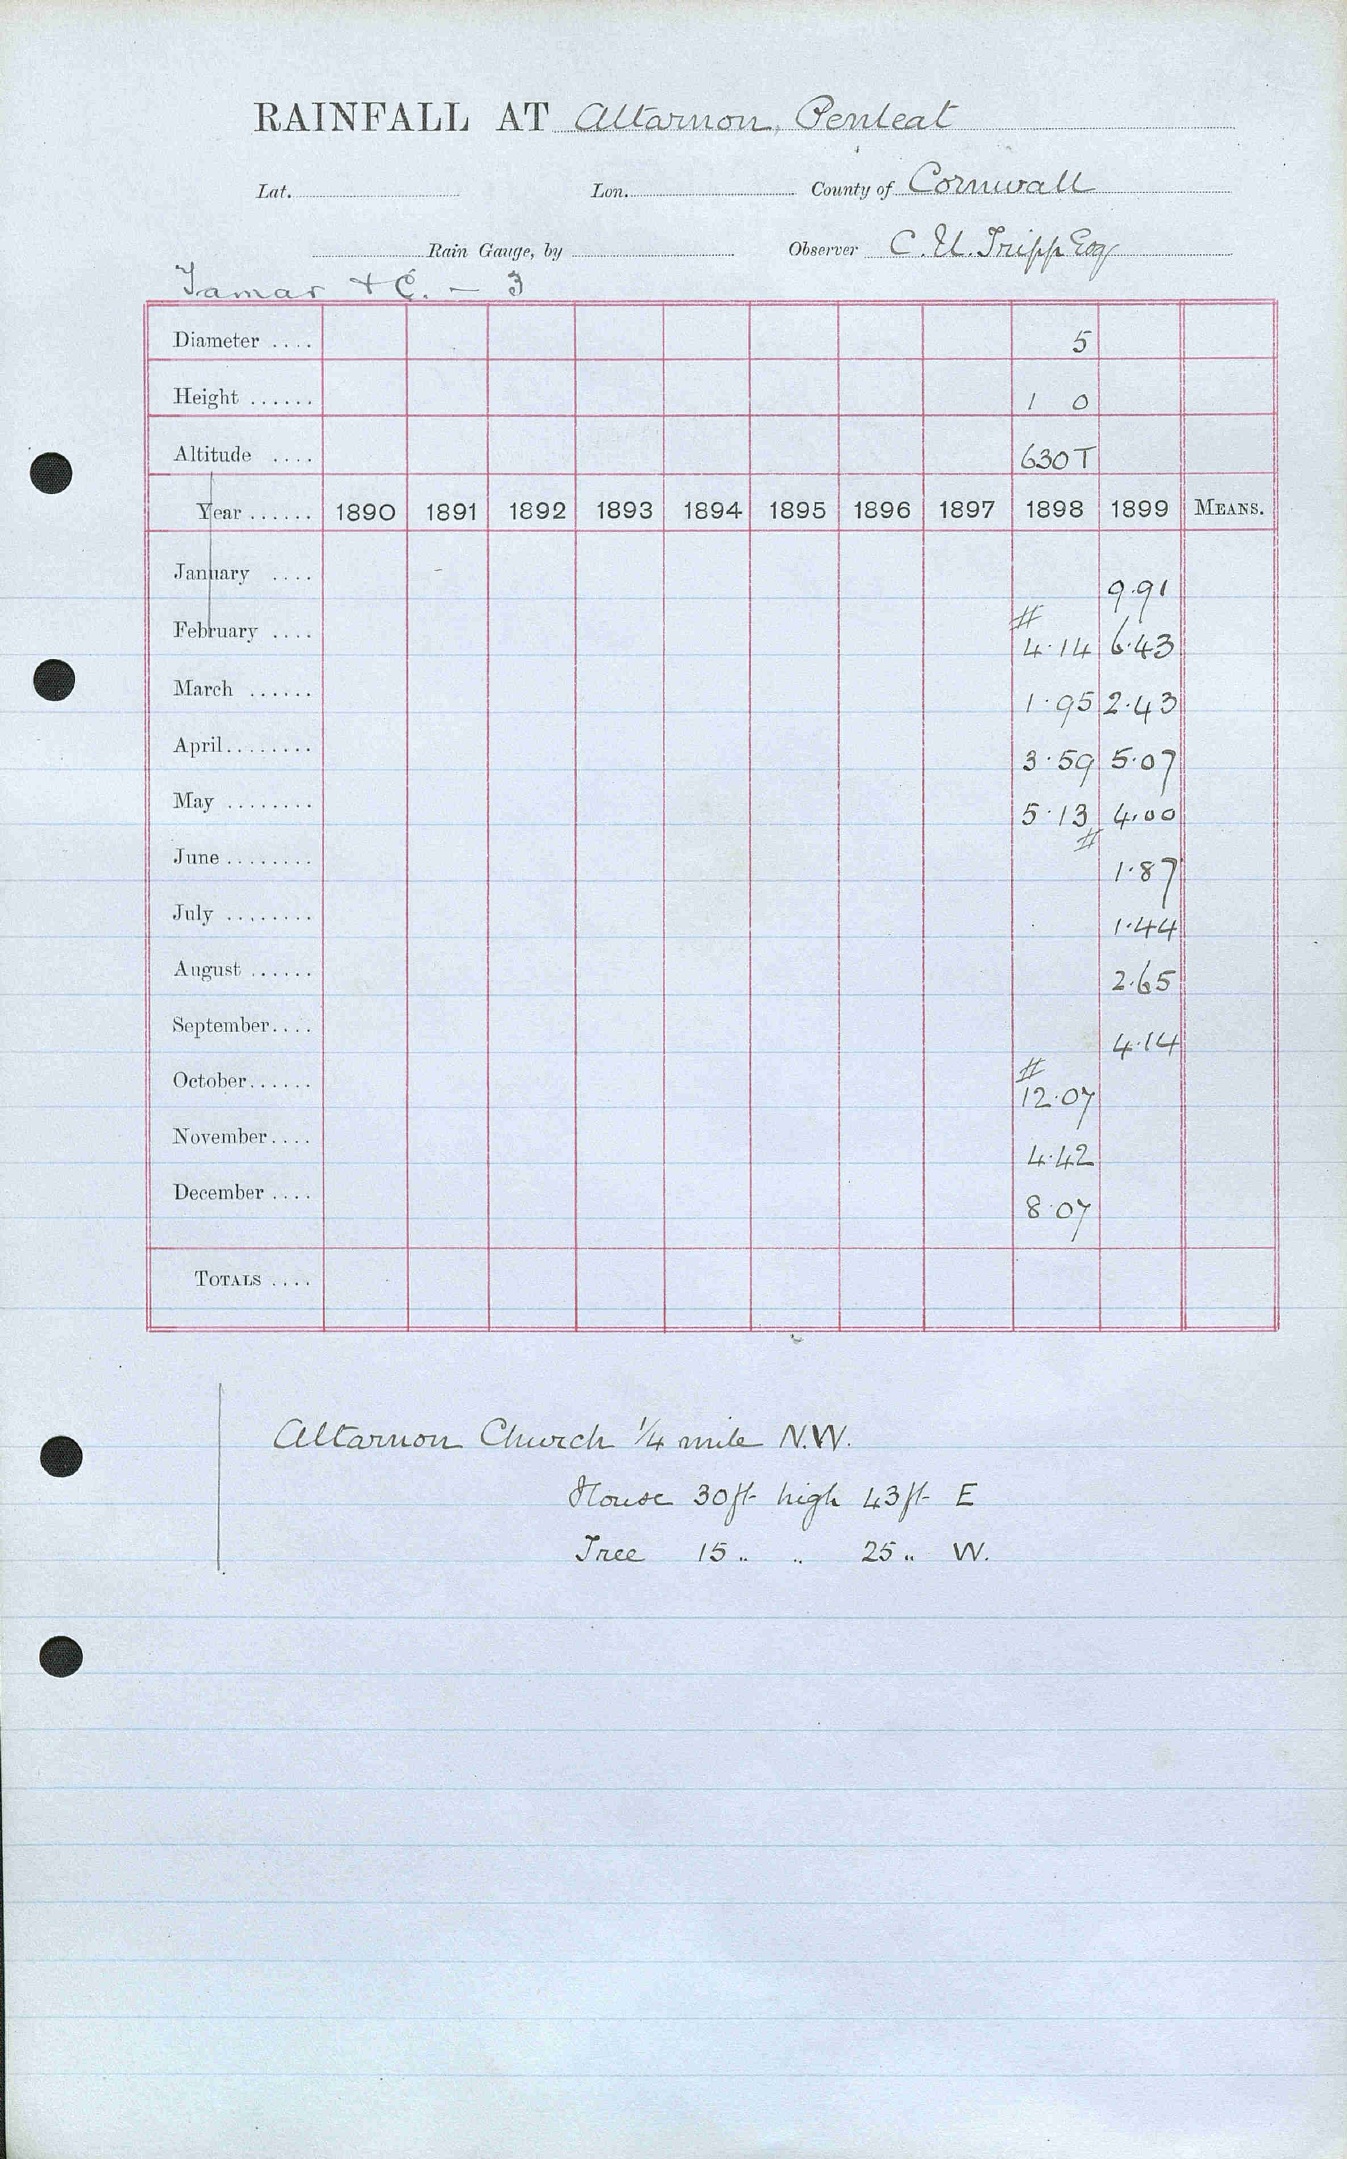 RAINFALL AT Altarnon, Penleat
Lat. Lon. County of Cornwall
Rain Gauge, by Observer C. U. Tripp Esq
Tamar + C. — 3
Diameter .... 5
Height ...... 1 0
Altitude .... 630 T
Year ...... 1890 1891 1892 1893 1894 1895 1896 1897 1898 1899 MEANS.
January .... 9.91
February .... # 4.14 6.43
March ...... 1.95 2.43
April........ 3.59 5.07
May ........ 5.13 4.00
June ........ # 1.87
July ........ 1.44
August ...... 2.65
September.... 4.14
October...... # 12.07
November.... 4.42
December .... 8.07
TOTALS ....
Altarnon Church 1/4 mile N.W.
House 30ft high 43ft E
Tree 15 " " 25 " W.